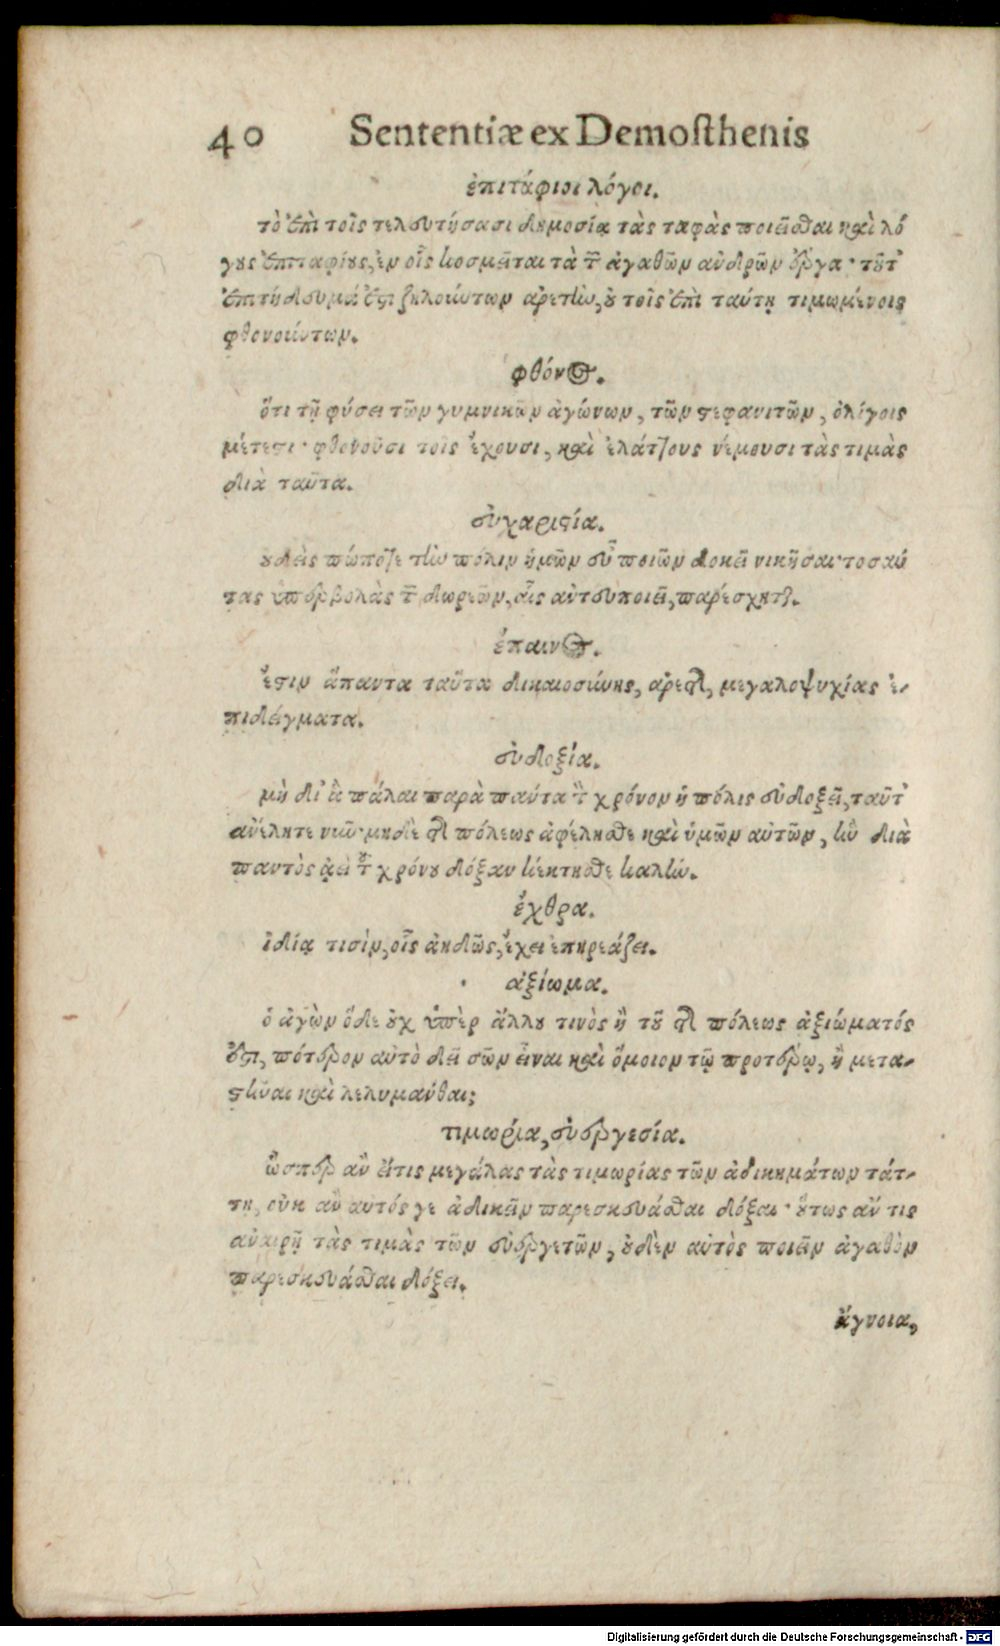 40 Sententiæ ex Demoſthenis
ἐπιτάφιοι λόγοι.
τὸ ἐπὶ τοῖς τελευτήσασι δημοσίᾳ τὰς ταφὰς ποιεῖσθαι καὶ λό
γους ἐπιταφίους, ἐν οἷς κοσμεῖται τὰ τῶν ἀγαθῶν ἀνδρῶν ἔργα· τοῦτ’
ἐπιτήδευμά ἐστι ζηλούντων ἀρετὴν, οὐ τοῖς ἐπὶ ταύτῃ τιμωμένοις
φθονούντων.
φθόνος.
ὅτι τῇ φύσει τῶν γυμνικῶν ἀγώνων, τῶν στεφανιτῶν, ὀλίγοις
μέτεστι· φθονοῦσι τοῖς ἔχουσι, καὶ ἐλάττους νέμουσι τὰς τιμὰς
διὰ ταῦτα.
εὐχαριστία.
οὐδεὶς πώποτε τὴν πόλιν ἡμῶν εὖ ποιῶν δοκεῖ νικῆσαι· τοσαύ
τας ὑπερβολὰς τῶν δωρεῶν, αἷς ἀντευποιεῖ, παρέσχηται.
ἔπαινος.
ἔστιν ἅπαντα ταῦτα δικαιοσύνης, ἀρετῆς, μεγαλοψυχίας ἐ-
πιδείγματα.
εὐδοξία.
μὴ δι’ ἃ πάλαι παρὰ πάντα τὸν χρόνον ἡ πόλις εὐδοξεῖ, ταῦτ’
ἀνέλητε νῦν· μηδὲ τῆς πόλεως ἀφέλησθε καὶ ὑμῶν αὐτῶν, ἣν διὰ
παντὸς ἀεὶ τοῦ χρόνου δόξαν κέκτησθε καλήν.
ἔχθρα.
ἰδίᾳ τισὶν, οἷς ἀηδῶς, ἔχει ἐπηρεάζει.
ἀξίωμα.
ὁ ἀγὼν ὅδε οὐχ ὑπὲρ ἄλλου τινὸς ἢ τοῦ τῆς πόλεως ἀξιώματός
ἐστι, πότερον αὐτὸ δεῖ σῶν εἶναι καὶ ὅμοιον τῷ προτέρῳ, ἢ μετα-
στῆναι καὶ λελυμάνθαι;
τιμωρία, εὐεργεσία.
ὥσπερ ἂν εἴ τις μεγάλας τὰς τιμωρίας τῶν ἀδικημάτων τάτ-
τῃ, οὐκ ἂν αὐτός γε ἀδικεῖν παρεσκευάσθαι δόξαι· οὕτως ἄν τις
ἀναιρῇ τὰς τιμὰς τῶν εὐεργετῶν, οὐδὲν αὐτὸς ποιεῖν ἀγαθὸν
παρεσκευάσθαι δόξει.
ἄγνοια,
Digitalisierung gefördert durch die Deutsche Forschungsgemeinschaft - DFG